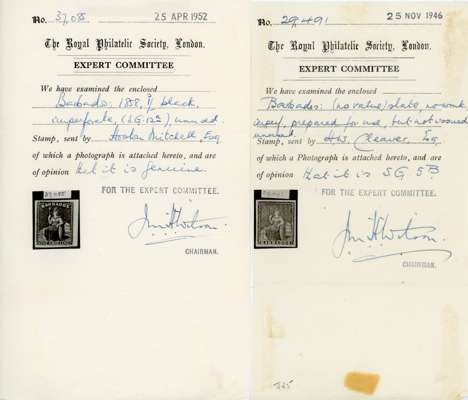 No. 37,085 25 APR 1952
The Royal Philatelic Society, London.
EXPERT COMMITTEE
We have examined the enclosed
Barbados: 1858, 1/- black,
imperforate, (S.G. 12a), unused
Stamp, sent by Houtzer Mitchell, Esq
of which a photograph is attached hereto, and are
of opinion that it is genuine.
FOR THE EXPERT COMMITTEE.
37,085
BARBADOS
ONE SHILLING
CHAIRMAN.
No. 29,491 25 NOV 1946
The Royal Philatelic Society, London.
EXPERT COMMITTEE
We have examined the enclosed
Barbados: (no value) slate, no wmk.
imperf, prepared for use, but not issued
unused
Stamp, sent by H.W. Cleaver, Esq
of which a Photograph is attached hereto, and are
of opinion that it is S.G. 5B
FOR THE EXPERT COMMITTEE.
BARBADOS
CHAIRMAN.